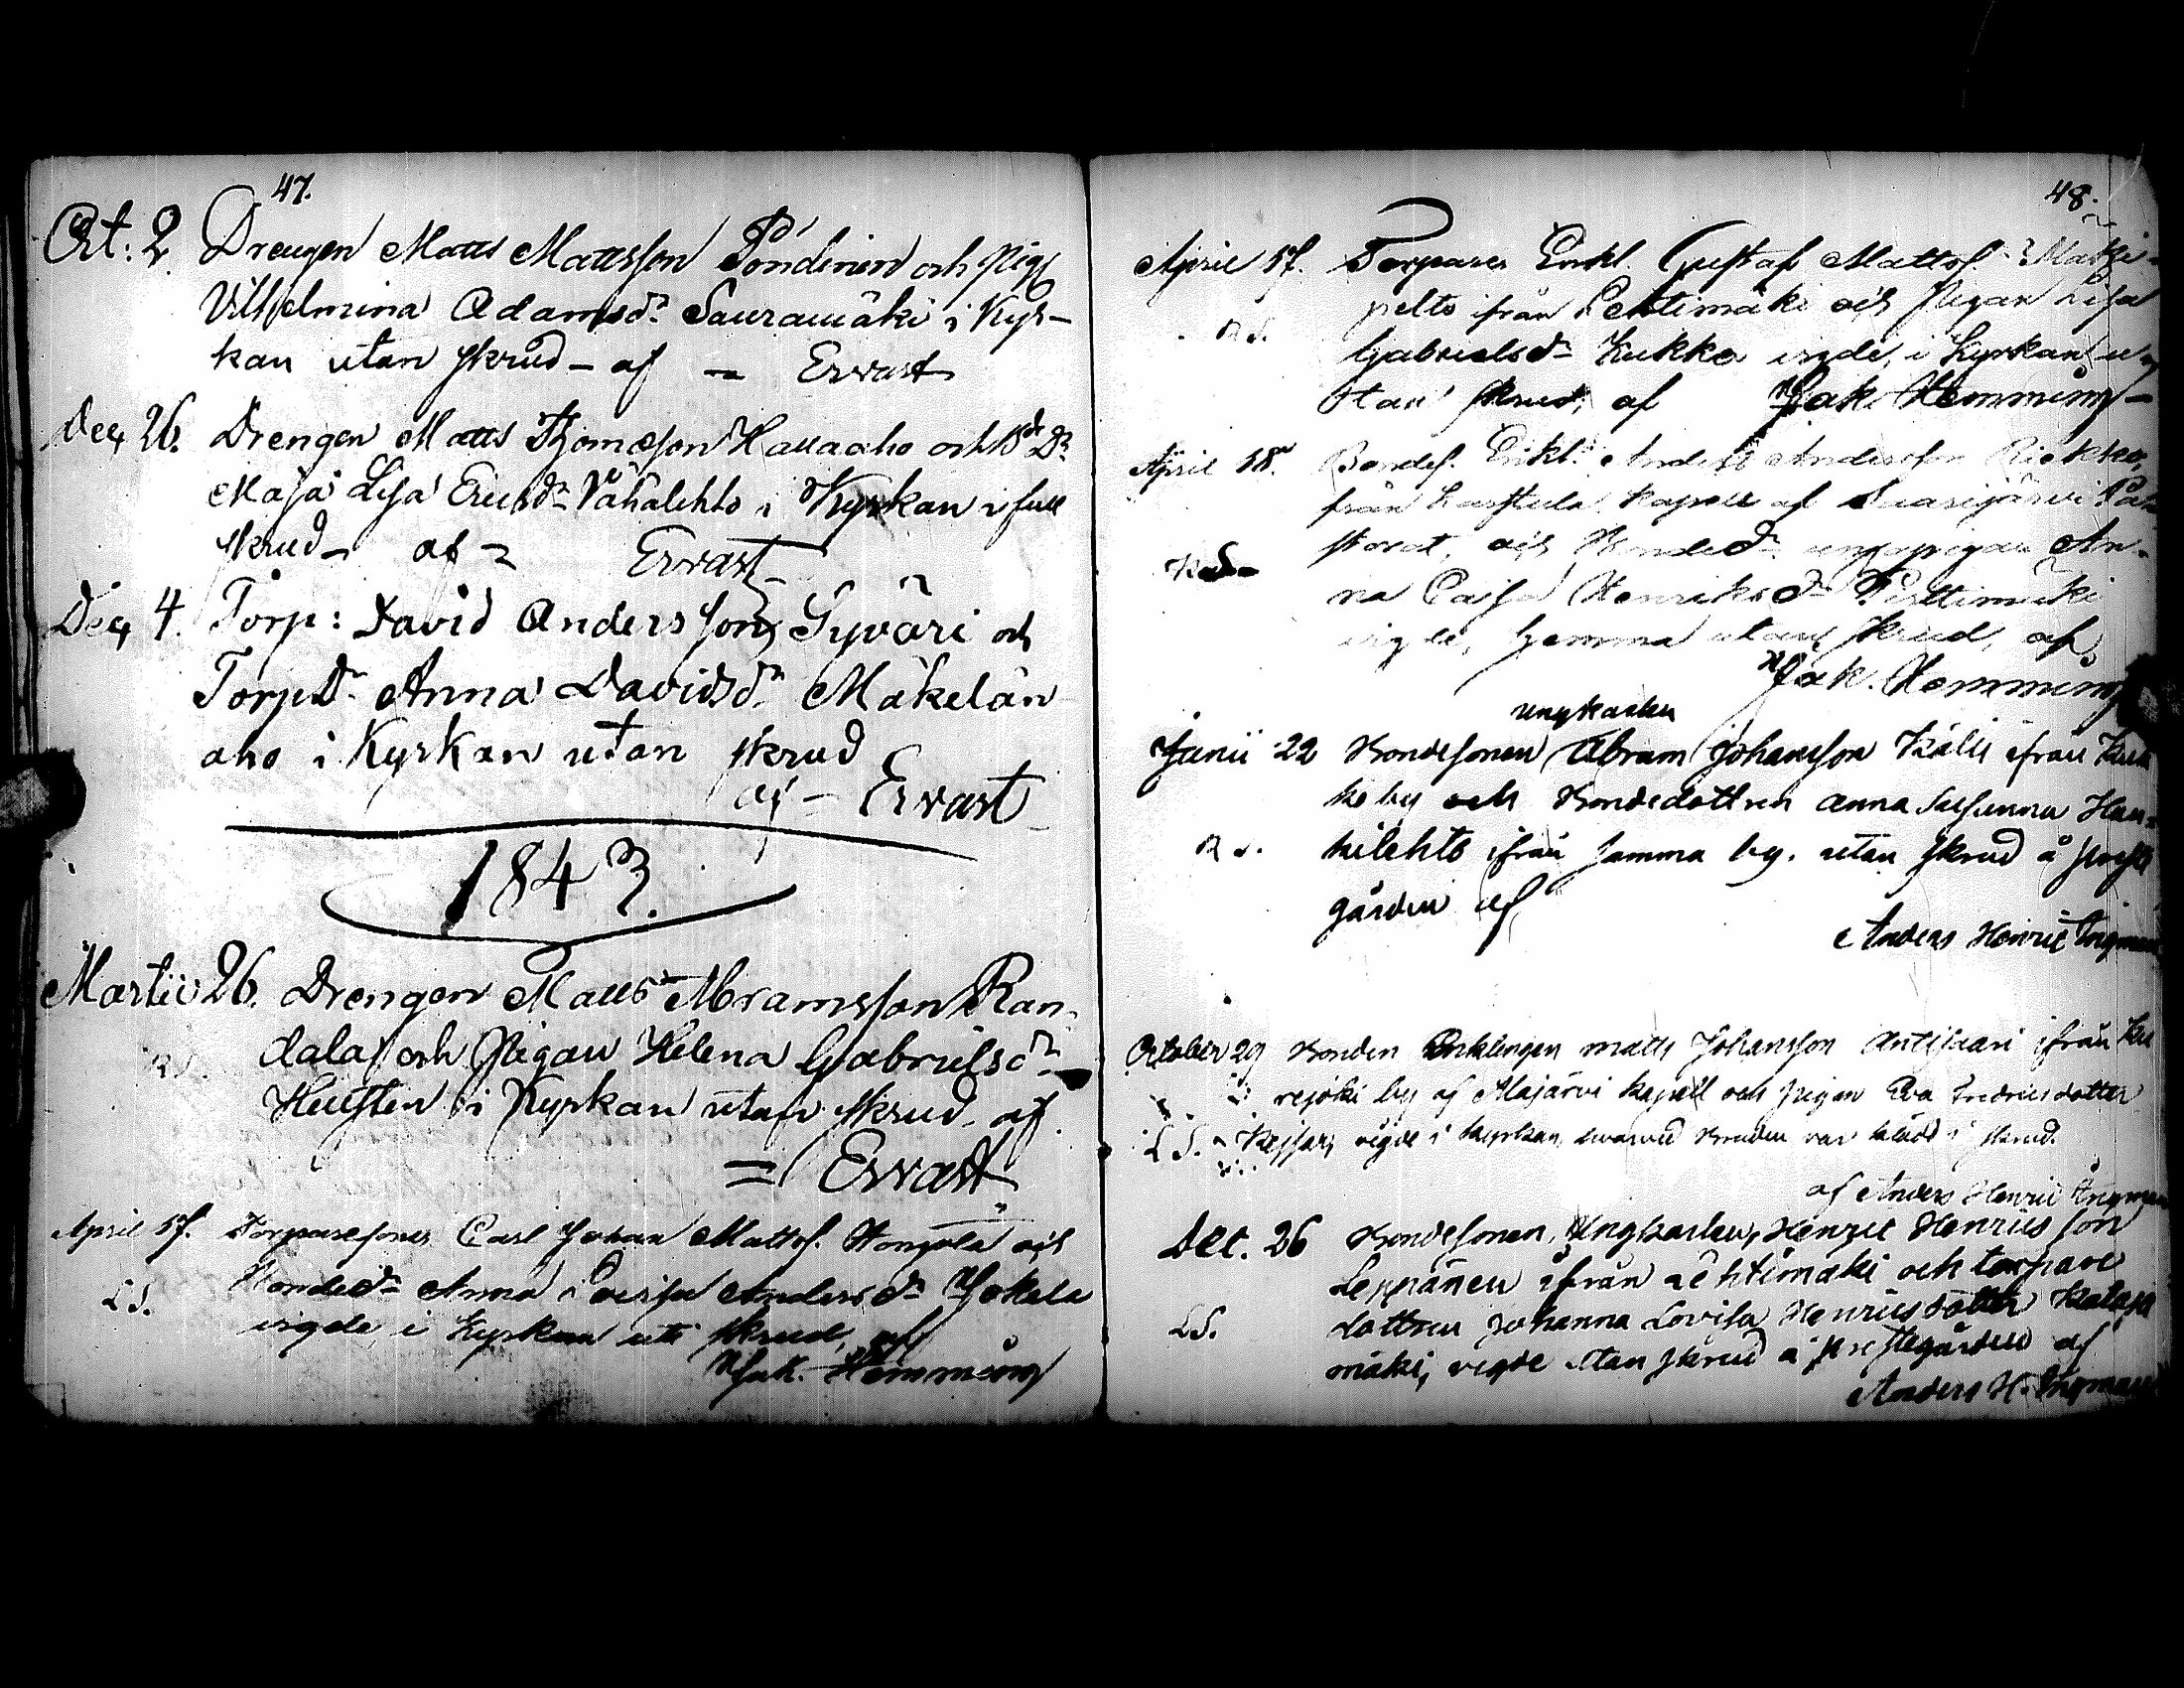 47.
Oct: 2 Drengen Matts Mattsson Pöndinen och Pig.
Vilhelmina Adamsdr Sauramäki i Kyr-
kan utan skrud - af - Ervast
Dec 26. Drengen Matts Thomasson Haueaho och Bdr Dr
Maja Lisa Ericsdr Vähälehto i Kyrkan i full
skrud - af - Ervast
Dec 4. Torp: David Andersson Syväri och
TorpDr Anna Davidsdr Mäkelän
aho i Kyrkan utan skrud
af - Ervast
1843.
Martii 26. Drengen Matts Abramsson Ran-
dala och Pigan Helena Gabrielsdr
R.S.
i Kyrkan utan skrud. af
= Ervast
April 17. Torparesonen Carl Johan Matts. Hongola och
Bondedr Anna Lovisa Andersdr Jokela
L.S.
vigde i Kyrkan uti skrud, af
Jak. Hemming
48.
April 17. Torparen Enkl. Gustaf Matts. Mäki-
pelto ifrån Lehtimäki och Pigan Lisa
R.S.
Gabrielsdr Kukko vigde, i Kyrkan u-
tan skrud, af Jak. Hemming
April 18. Bondes. Enkl. Anders Andersson Riekko,
från Karstula kapell af Saarijärvi Pa-
storat, och Bondedr ungapigan An-
na Caisa Henriksdr Pirttimäki
vigde, hemma utan skrud, af
Jak. Hemming
ungkarlen
Junii 22 Bondesonen Abram Johansson Kälis ifrån
ko by och Bondedottren Anna Susanna Han-
R.S.
kilehto ifrån samma by. utan skrud å prest
gården af
Anders Henric Ingman
October 29 Bonden Enklingen Matts Johansson Antisaari ifrån Ku
rejoki by af Alajärvi kapell och pigan Eva Fredricsdotter
L.S.
Keisari, vigde i kyrkan hvarvid Bruden var klädd i skrud.
af Anders Henric Ingman
Dec. 26 Bondesonen, Ungkarlen, Henric Henricsson
Leppänen ifrån Lehtimäki och torpare
L.S.
dottren Johanna Lovisa Henricsdotter Kataja
mäki, vigde utan skrud å prestegården af
Anders H. Ingman